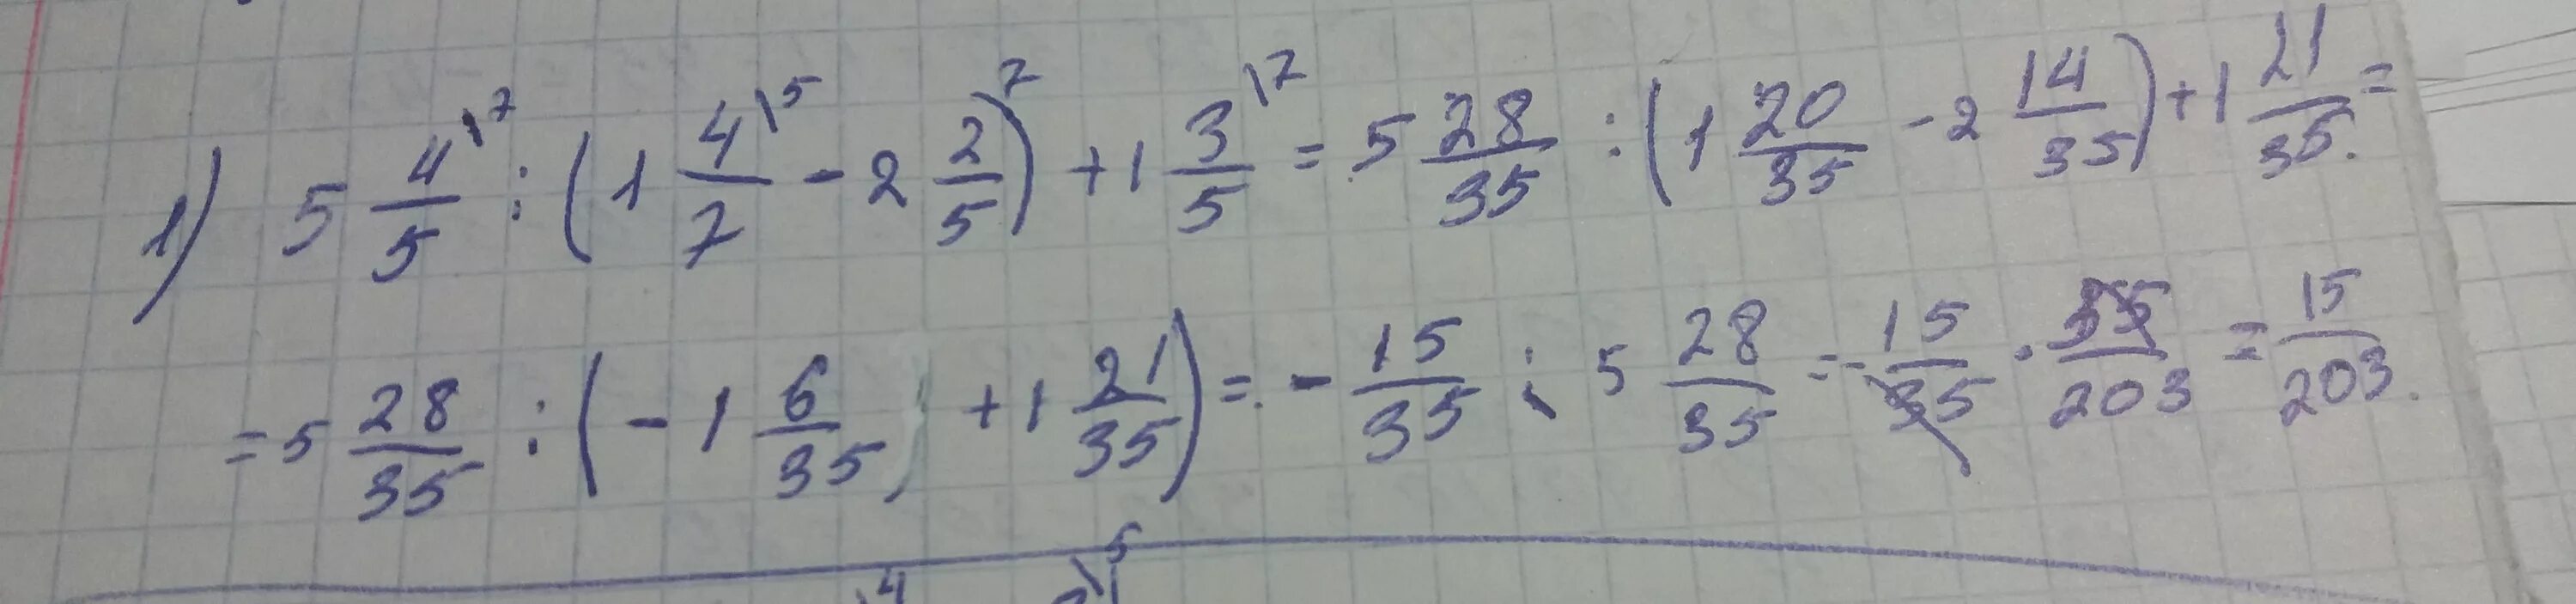 1) 5 4/5 \7 : (1 4/7 \5 - 2 2/5) \7 + 1 3/5 \7 = 5 28/35 : (1 20/35 - 2 14/35) + 1 21/35 =
= 5 28/35 : (- 1 6/35 + 1 21/35) = - 15/35 : 5 28/35 = - 15/35 · 35/203 = 15/203.
\4 \5